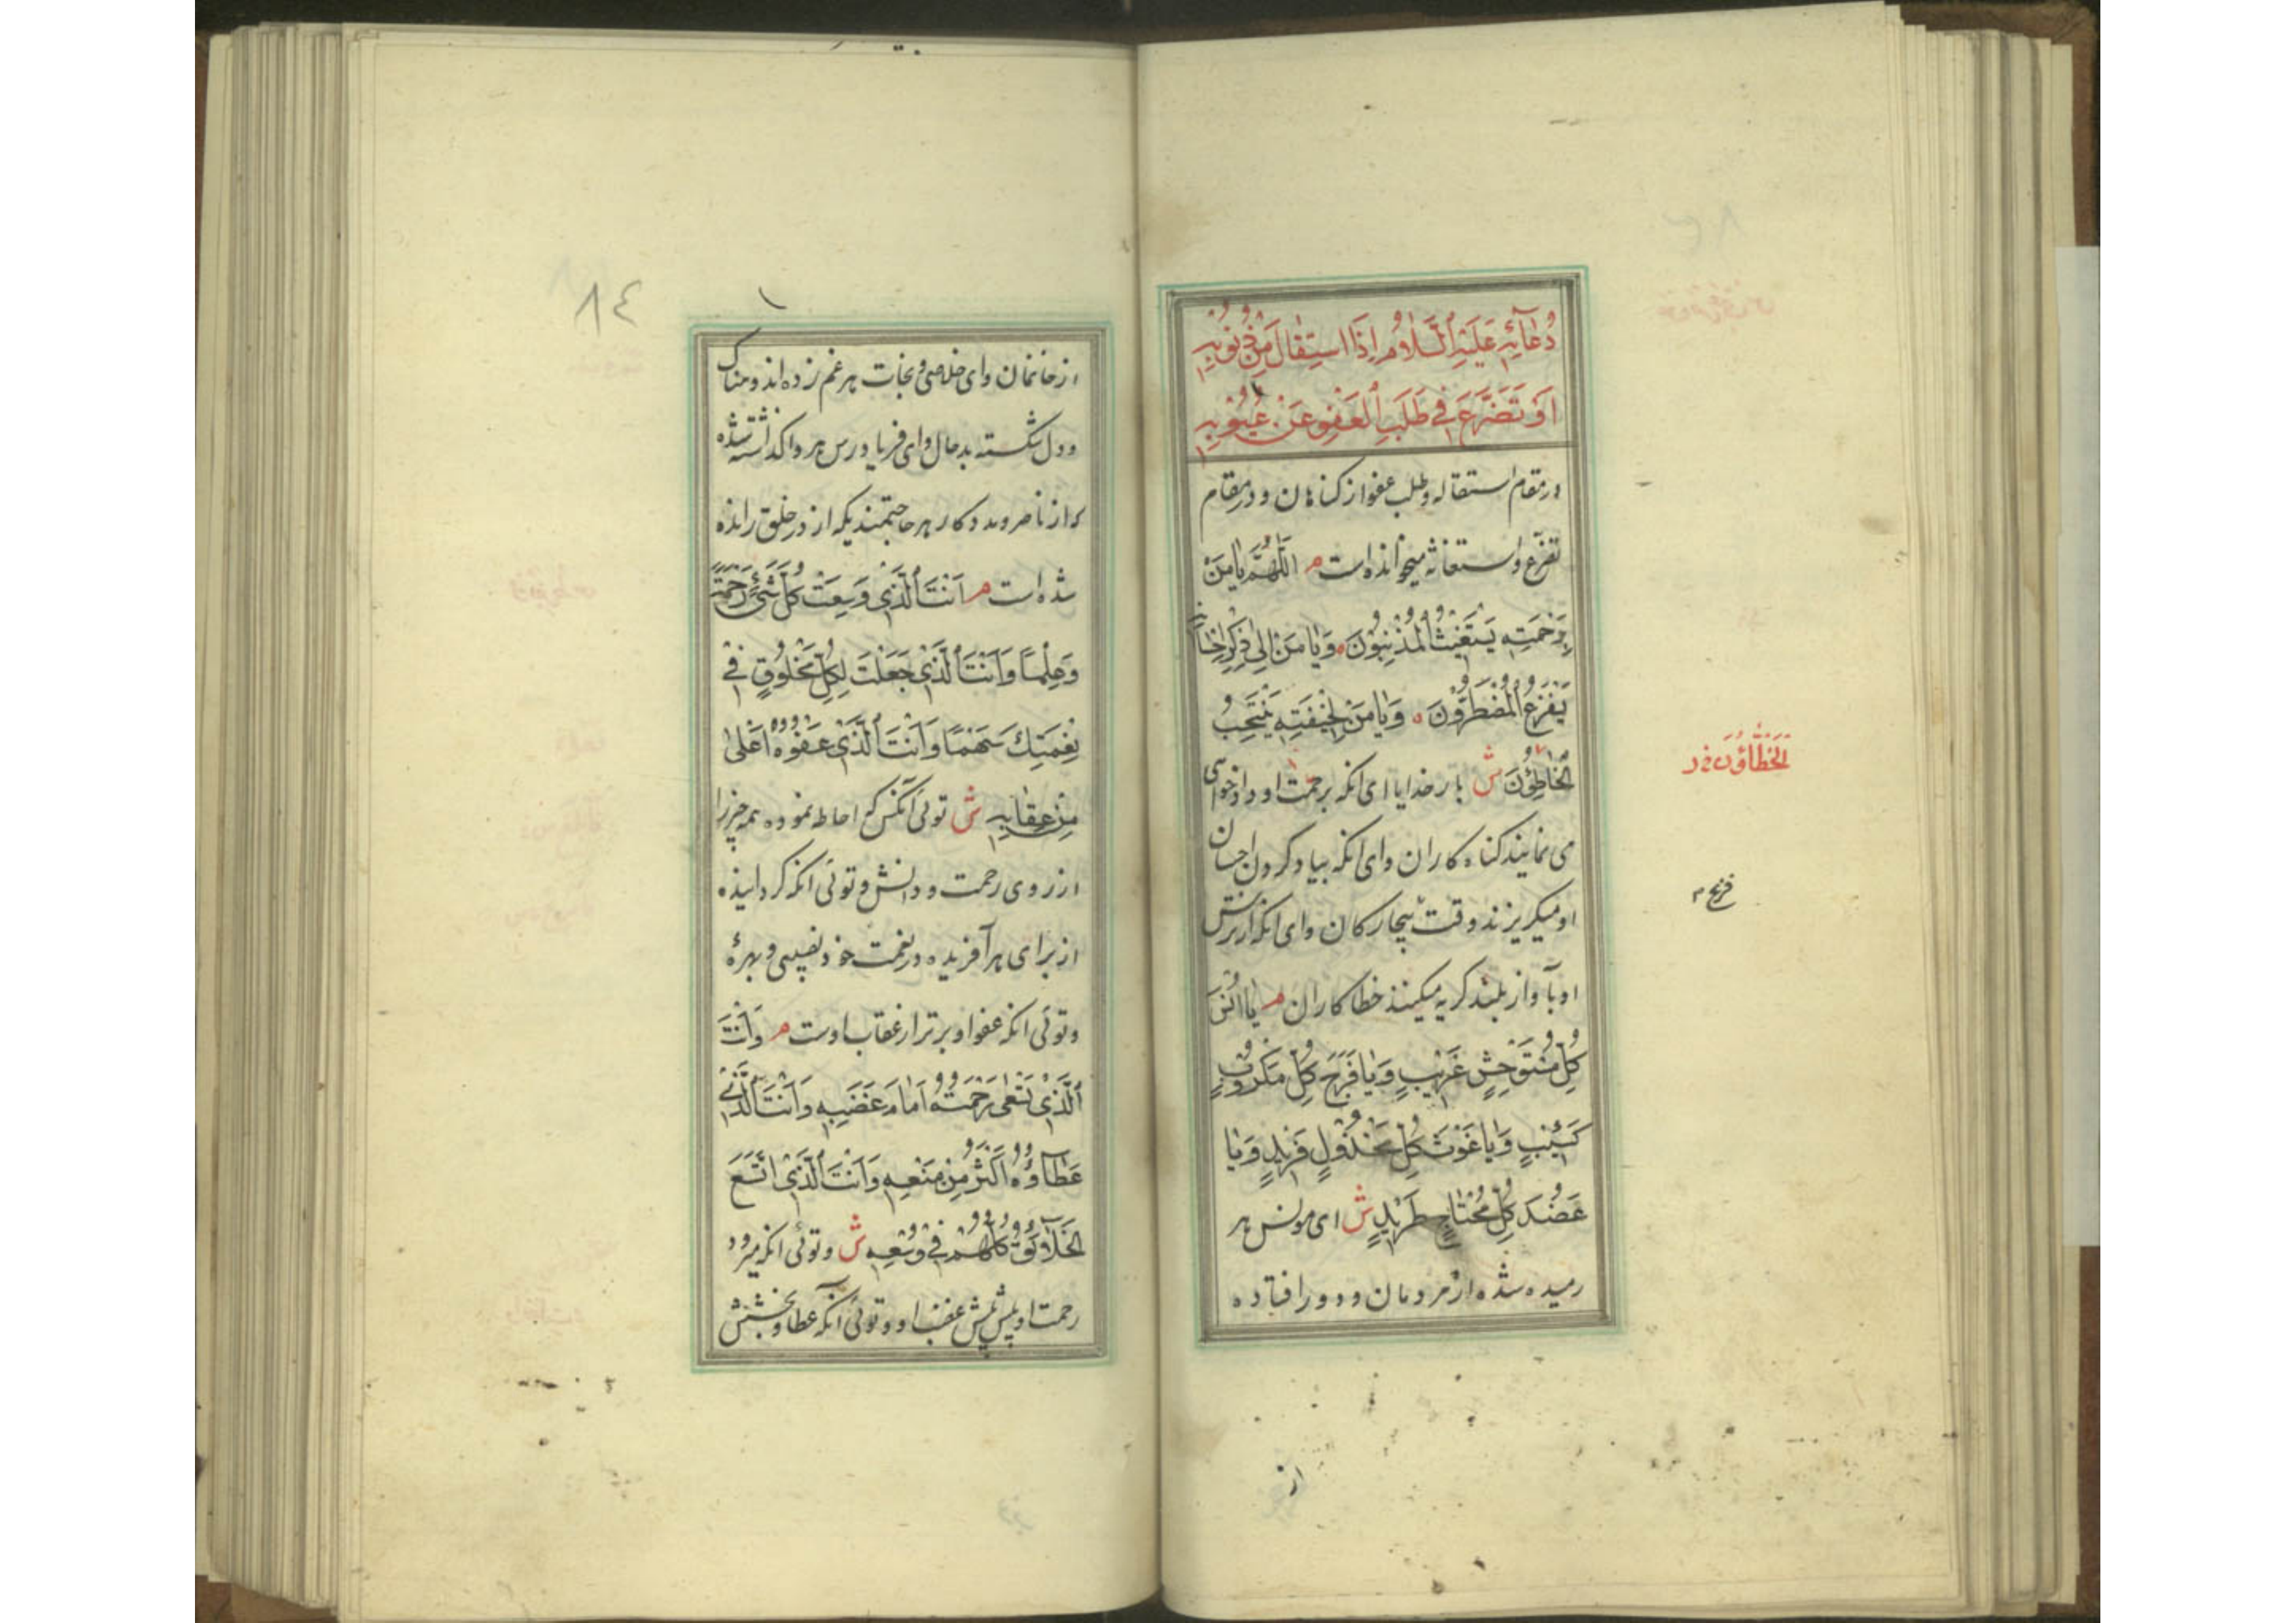 دُعَائِهِ عَلَيْهِ السَّلَامُ إِذَا اسْتَقَالَ مِنْ ذُنُوبِهِ
أَوْ تَضَرَّعَ فِي طَلَبِ الْعَفْوِ عَنْ عُيُوبِهِ
در مقام استقاله و طلب عفو از کناهان و در مقام
تضرّع و استغاثه میخوانده است م اَللّٰهُمَّ يَا مَنْ
بِرَحْمَتِهِ يَسْتَغِيثُ الْمُذْنِبُونَ وَيَا مَنْ إِلَى ذِكْرِ إِحْسَانِهِ
يَفْزَعُ الْمُضْطَرُّونَ وَيَا مَنْ لِخِيفَتِهِ يَنْتَحِبُ
الْخَاطِئُونَ ش بار خدایا ای انکه برحمت او دادخواهی
می نمایند کناه کاران و ای انکه بیاد کردن احسان
او میکریزند وقت بیچارکان و ای انکه از ترس
او بآواز بلند کریه میکنند خطاکاران م يَا أُنْسَ
كُلِّ مُسْتَوْحِشٍ غَرِيبٍ وَيَا فَرَجَ كُلِّ مَكْرُوبٍ
كَئِيبٍ وَيَا غَوْثَ كُلِّ مَخْذُولٍ فَرِيدٍ وَيَا
عَضُدَ كُلِّ مُحْتَاجٍ طَرِيدٍ ش ای مونس هر
رمیده شده از مردمان و دور افتاده
الخَطَّاؤُنَ خ د
از
٨٤
از خانمان و ای خلاصی و نجات هر غم زده اندوهناک
و دل شکسته بدحال و ای فریادرس هر واکذاشته شده
که از ناصر و مددکار هر حاجتمندیکه از در خلق رانده
شده است م أَنْتَ الَّذِي وَسِعْتَ كُلَّ شَيْءٍ رَحْمَةً
وَعِلْمًا وَأَنْتَ الَّذِي جَعَلْتَ لِكُلِّ مَخْلُوقٍ فِي
نِعَمِكَ سَهْمًا وَأَنْتَ الَّذِي عَفْوُهُ أَعْلَى
مِنْ عِقَابِهِ ش توئی آنکس که احاطه نموده همه چیز را
از روی رحمت و دانش و توئی انکه کردانیده
از برای هر آفریده در نعمت خود نصیبی و بهرهٔ
و توئی انکه عفو او برتر از عقاب اوست م وَأَنْتَ
الَّذِي تَسْعَى رَحْمَتُهُ أَمَامَ غَضَبِهِ وَأَنْتَ الَّذِي
عَطَاؤُهُ أَكْثَرُ مِنْ مَنْعِهِ وَأَنْتَ الَّذِي اتَّسَعَ
الْخَلَائِقُ كُلُّهُمْ فِي وُسْعِهِ ش و توئی انکه میرود
رحمت او پیش پیش غضب او و توئی آنکه عطا و بخشش